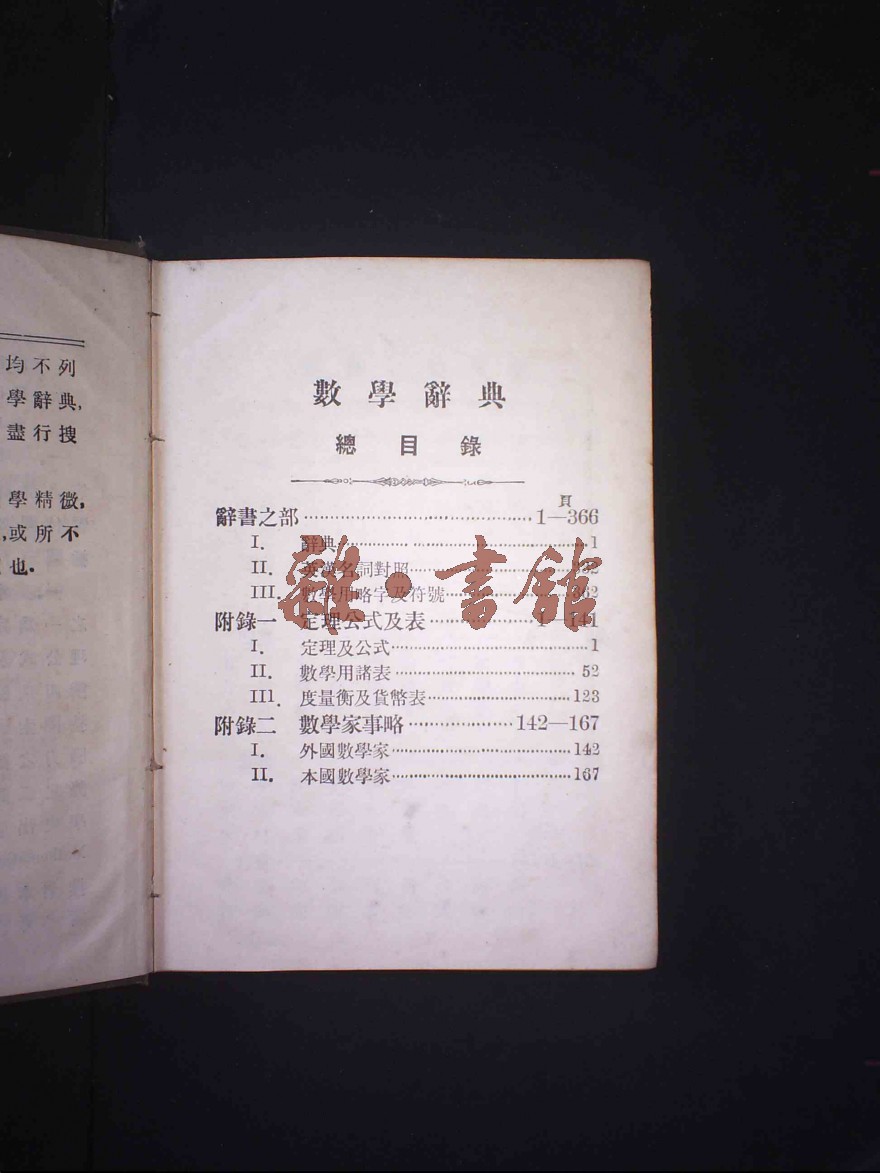 均不列
學辭典,
盡行搜
學精微,
,或所不
也.
數學辭典
總目錄
頁
辭書之部 1—366
I. 辭典 1
II. 英漢名詞對照
III. 數學用略字及符號 362
附錄一 定理公式及表 1—141
I. 定理及公式 1
II. 數學用諸表 52
III. 度量衡及貨幣表 123
附錄二 數學家事略 142—167
I. 外國數學家 142
II. 本國數學家 167
雜·書館